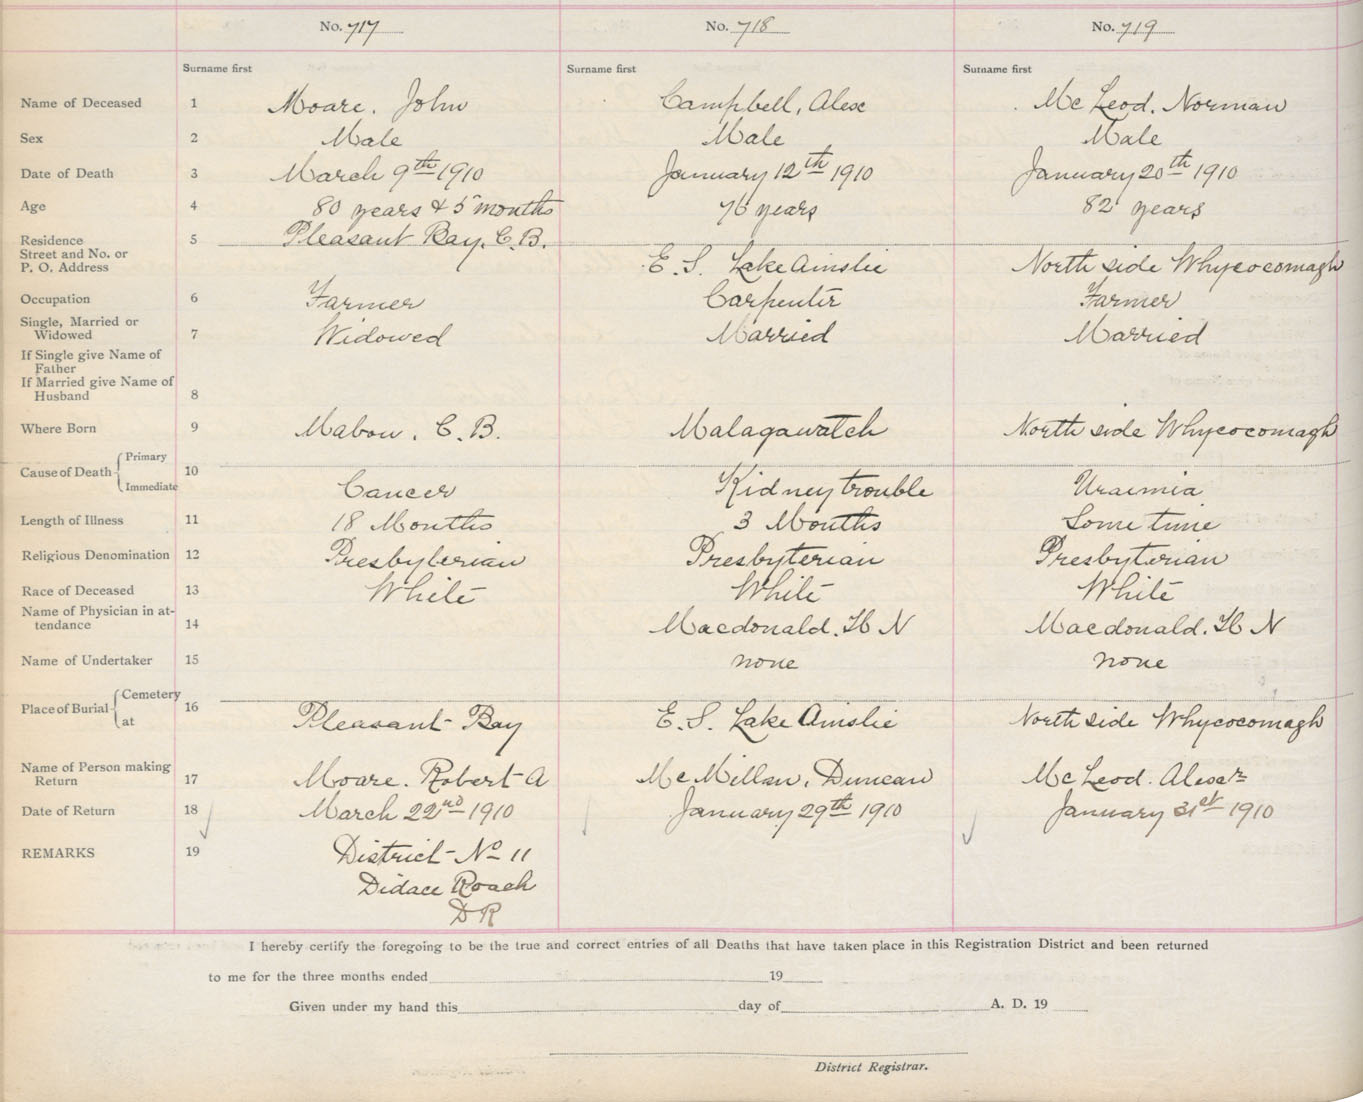 No. 717 No. 718 No. 719
Surname first Surname first Surname first
Name of Deceased 1 Moare, John Campbell, Alex Mc Leod, Norman
Sex 2 Male Male Male
Date of Death 3 March 9th 1910 January 12th 1910 January 20th 1910
Age 4 80 years & 5 months 76 years 82 years
Residence 5 Pleasant Bay, C.B.
Street and No. or
P. O. Address E. S. Lake Ainslie North side Whycocomagh
Occupation 6 Farmer Carpenter Farmer
Single, Married or
Widowed 7 Widowed Married Married
If Single give Name of
Father
If Married give Name of
Husband 8
Where Born 9 Mabou, C.B. Malagawatch North side Whycocomagh
Cause of Death Primary 10
Immediate Cancer Kidney trouble Uraimia
Length of Illness 11 18 Months 3 Months Some time
Religious Denomination 12 Presbyterian Presbyterian Presbyterian
Race of Deceased 13 White White White
Name of Physician in at-
tendance 14 Macdonald. H N Macdonald. H N
Name of Undertaker 15 none none
Place of Burial Cemetery 16
at Pleasant Bay E. S. Lake Ainslie North side Whycocomagh
Name of Person making
Return 17 Moare. Robert A McMillan, Duncan Mc Leod. Alexr
Date of Return 18 March 22nd 1910 January 29th 1910 January 31st 1910
REMARKS 19 District No 11
Didace Roach
D R
I hereby certify the foregoing to be the true and correct entries of all Deaths that have taken place in this Registration District and been returned
to me for the three months ended 19
Given under my hand this day of A. D. 19
District Registrar.